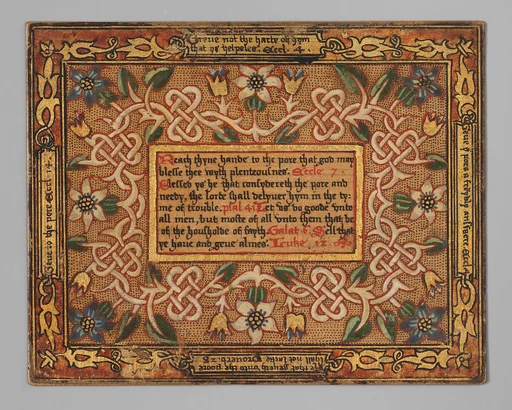 Greue not the harte of hym
that ys helples. Eccl. 4.
Reach thyne hande to the pore that god may
blesse thee wyth plenteousnes. Eccle. 7.
Blessed ys he that consydereth the pore and
needy, the lorde shall delyuer hym in the ty-
me of trouble. psal 41. Let vs do goode vnto
all men, but moste of all vnto them that be
of the housholde of fayth. Galat 6. Sell that
ye haue and geue almes. Luke, 12
Geue to the pore Eccl 14.
Geue ye pore a frendly answere Eccl
that geueth vnto the poore
shall not lacke Prouerb. 28